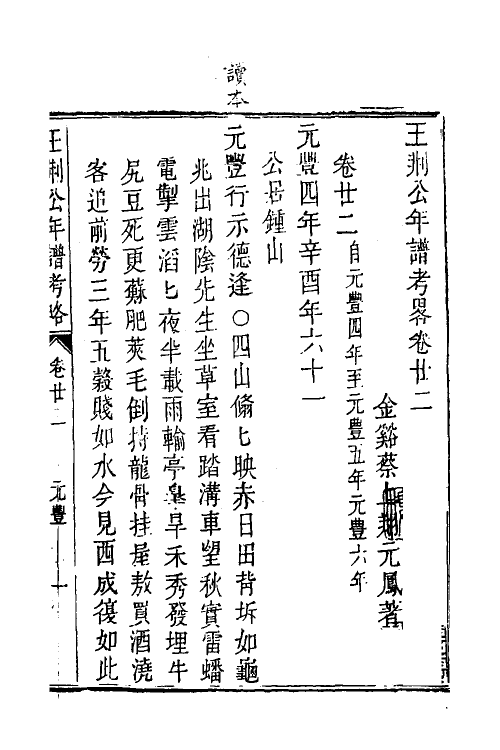 讀本
王荆公年譜考畧卷廿二
金谿蔡上翔元鳳著
卷廿二自元豐四年至元豐五年元豐六年
元豐四年辛酉年六十一
公居鍾山
元豐行示德逢〇四山翛匕映赤日田背坼如龜
兆出湖陰先生坐草室看踏溝車望秋實雷蟠
電掣雲滔匕夜半載雨輸亭臯旱禾秀發埋牛
尻豆死更蘇肥莢毛倒持龍骨挂屋敖買酒澆
客追前勞三年五穀賤如水今見西成復如此
王荆公年譜考略 卷廿二 元豐 一